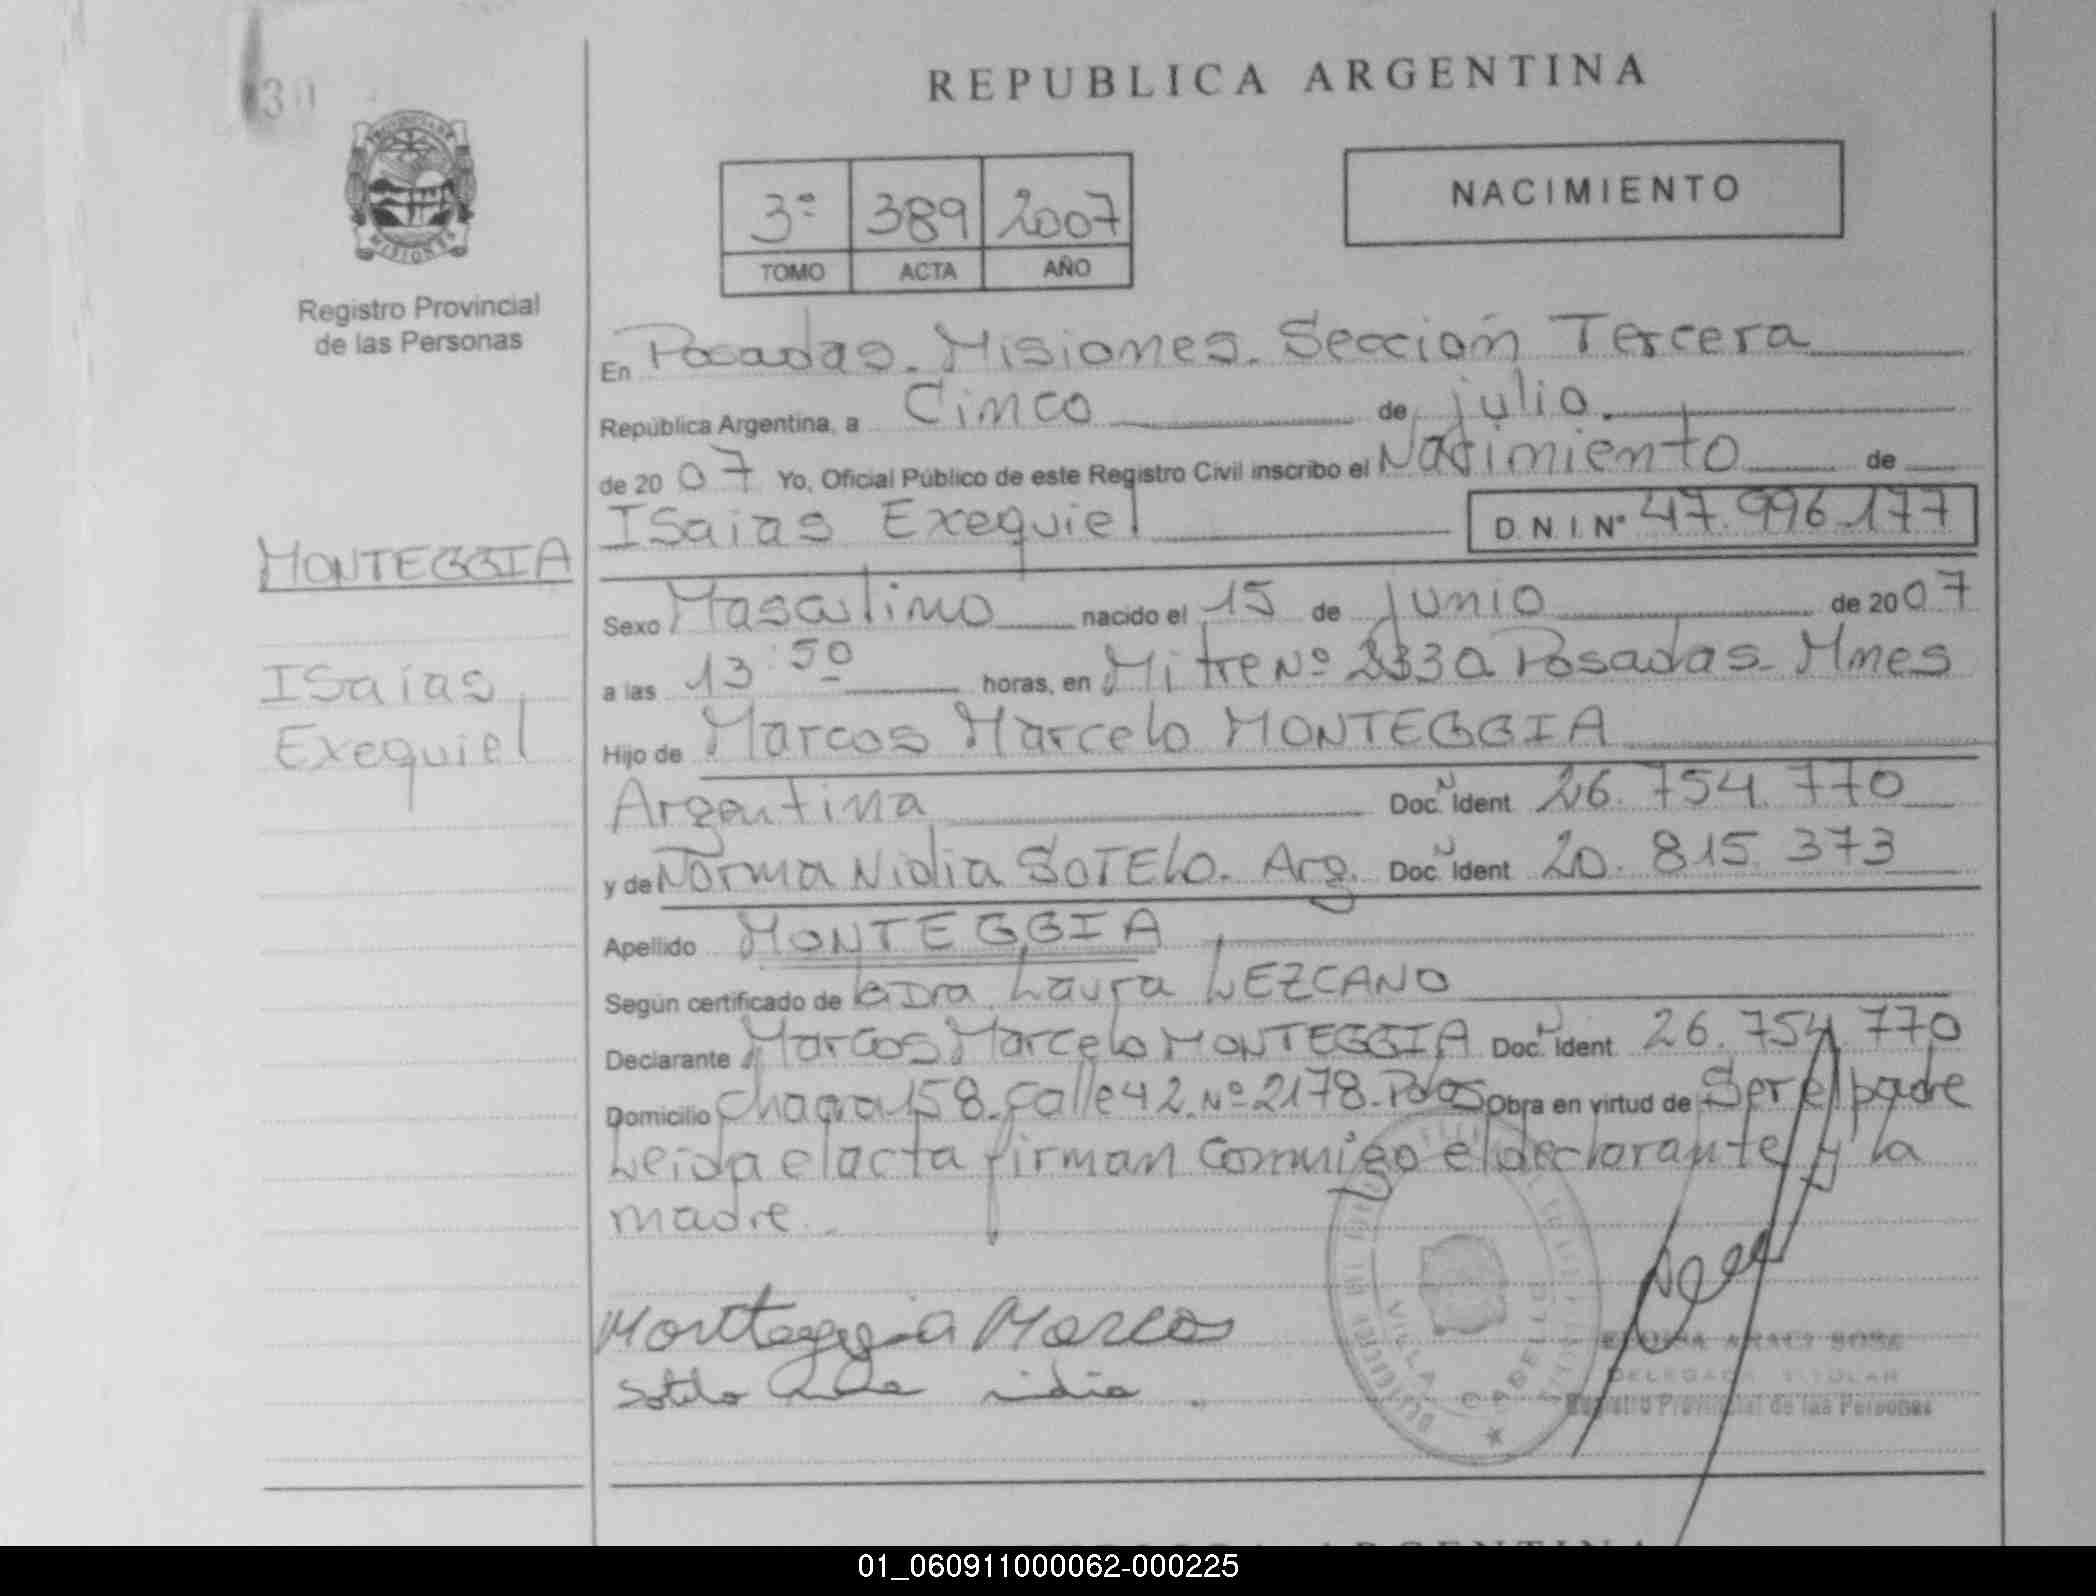 30
REPUBLICA ARGENTINA
PROVINCIA DE
MISIONES
Registro Provincial
de las Personas
3º 389 2007
TOMO ACTA AÑO
NACIMIENTO
En Posadas. Misiones. Sección Tercera
República Argentina, a Cinco de julio.
de 2007 Yo, Oficial Público de este Registro Civil inscribo el Nacimiento de
ISaias Exequiel D.N.I.Nº 47.996.177
MONTEGGIA
ISaías
Exequiel
Sexo Masculino nacido el 15 de junio de 2007
a las 13:50 horas, en Mitre Nº Posadas. Mnes
Hijo de Marcos Marcelo MONTEGGIA
Argentina Doc. Ident 26.754.770
y de Norma Nidia SOTELO. Arg. Doc. Ident 20.815.373
Apellido MONTEGGIA
Según certificado de la Dra. Laura LEZCANO
Declarante Marcos Marcelo MONTEGGIA Doc. Ident 26.754.770
Domicilio Chacra 158. Calle 42. Nº 2178. Pdas Obra en virtud de Ser el padre
Leida el acta firman Conmigo el declarante y la
madre.
Montteggia Marcos
Sotelo nidia
VILLA CABELLO
ARACI SOSA
DELEGADA TITULAR
Registro Provincial de las Personas
01_060911000062-000225